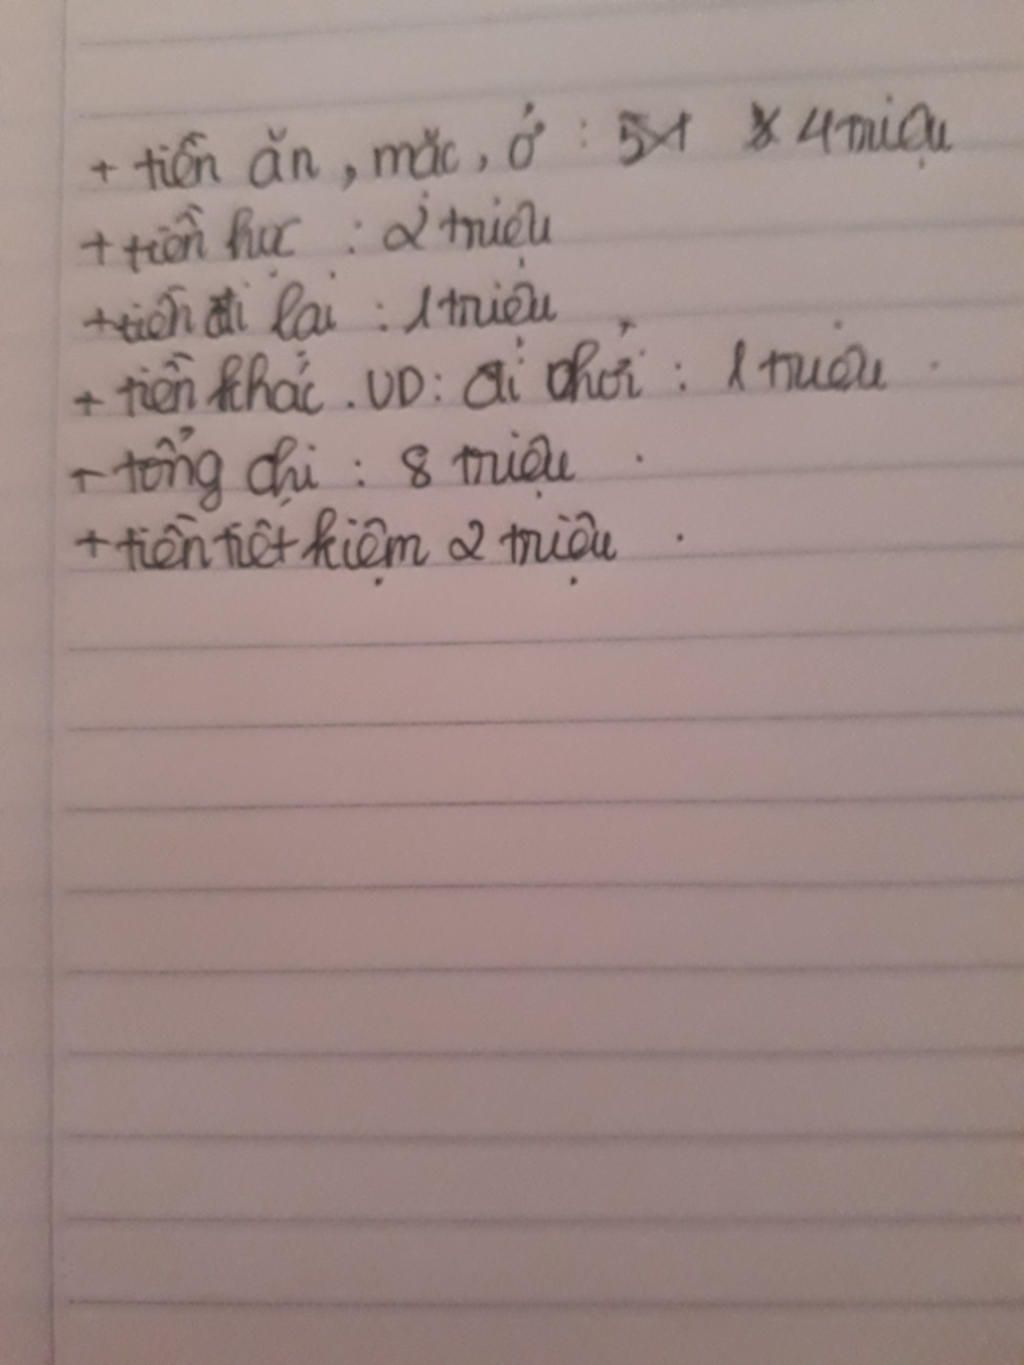 + tiền ăn, mặc, ở : 4 triệu
+ tiền học : 2 triệu
+ tiền đi lại : 1 triệu
+ tiền khác. VD: đi chơi : 1 triệu.
+ tổng chi : 8 triệu.
+ tiền tiết kiệm 2 triệu.